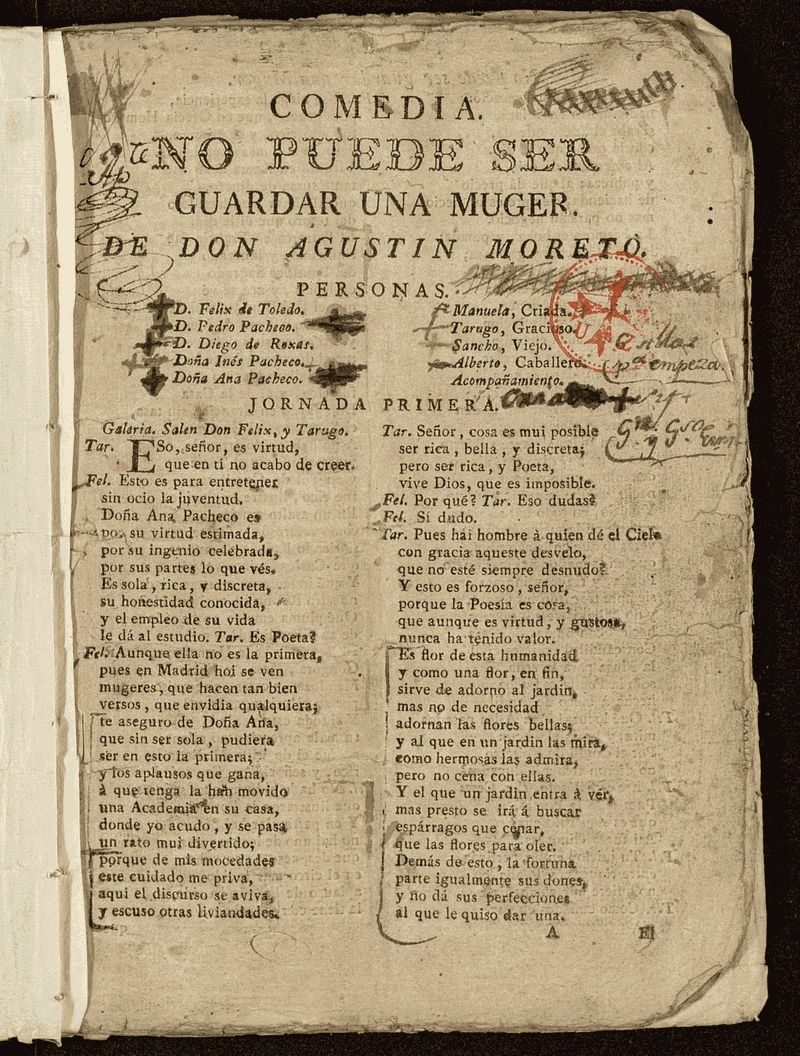 COMEDIA.
NO PUEDE SER
GUARDAR UNA MUGER.
DE DON AGUSTIN MORETO.
PERSONAS.
D. Felix de Toledo.
D. Pedro Pacheco.
D. Diego de Roxas.
Doña Inés Pacheco.
Doña Ana Pacheco.
Manuela, Criada.
Tarugo, Gracioso.
Sancho, Viejo.
Alberto, Caballero.
Acompañamiento.
pª empezar
JORNADA PRIMERA.
Galeria. Salen Don Felix, y Tarugo.
Tar. ESo, señor, es virtud,
que en tí no acabo de creer.
Fel. Esto es para entretener
sin ocio la juventud.
Doña Ana Pacheco es
por su virtud estimada,
por su ingenio celebrada,
por sus partes lo que vés.
Es sola, rica, y discreta,
su honestidad conocida,
y el empleo de su vida
le dá al estudio. Tar. Es Poeta?
Fel. Aunque ella no es la primera,
pues en Madrid hoi se ven
mugeres, que hacen tan bien
versos, que envidia qualquiera;
te aseguro de Doña Ana,
que sin ser sola, pudiera
ser en esto la primera;
y los aplausos que gana,
à que tenga la han movido
una Academia en su casa,
donde yo acudo, y se pasa
un rato mui divertido;
porque de mis mocedades
este cuidado me priva,
aqui el discurso se aviva,
y escuso otras liviandades.
Tar. Señor, cosa es mui posible
ser rica, bella, y discreta;
pero ser rica, y Poeta,
vive Dios, que es imposible.
Fel. Por qué? Tar. Eso dudas?
Fel. Sí dudo.
Tar. Pues hai hombre à quien dé el Cielo
con gracia aqueste desvelo,
que no esté siempre desnudo?
Y esto es forzoso, señor,
porque la Poesía es cosa,
que aunque es virtud, y gustosa,
nunca ha tenido valor.
Es flor de esta humanidad
y como una flor, en fin,
sirve de adorno al jardin,
mas no de necesidad
adornan las flores bellas;
y al que en un jardin las mira,
como hermosas las admira,
pero no cena con ellas.
Y el que un jardin entra à vér,
mas presto se irá á buscar
espárragos que cenar,
que las flores para oler.
Demás de esto, la fortuna
parte igualmente sus dones,
y no dá sus perfecciones
al que le quiso dar una.
A El